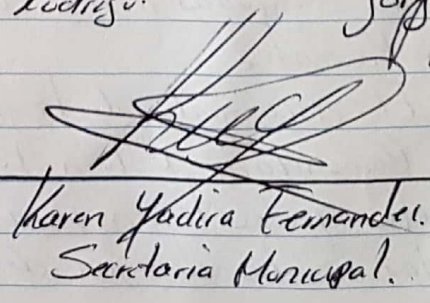 Rodrigo.
Karen Yadira Fernandez.
Secretaria Municipal.